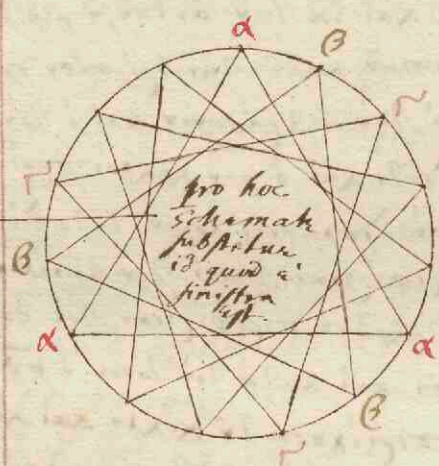 α
β
α
β
α
β
pro hoc
schemate
substitua
id quod a
sinistra
est.